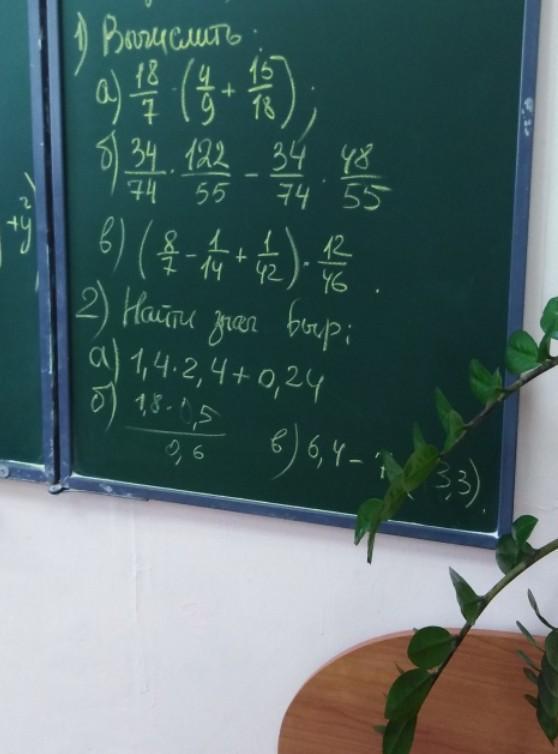 1) Вычислить:
а) 18/7 · (4/9 + 15/18);
б) 34/74 · 122/55 − 34/74 · 48/55
в) (8/7 − 1/14 + 1/42) · 12/46.
2) Найти знач выр:
а) 1,4 · 2,4 + 0,24
б) 1,8 · 0,5 / 0,6
в) 6,4 − 3,3).
+y²)